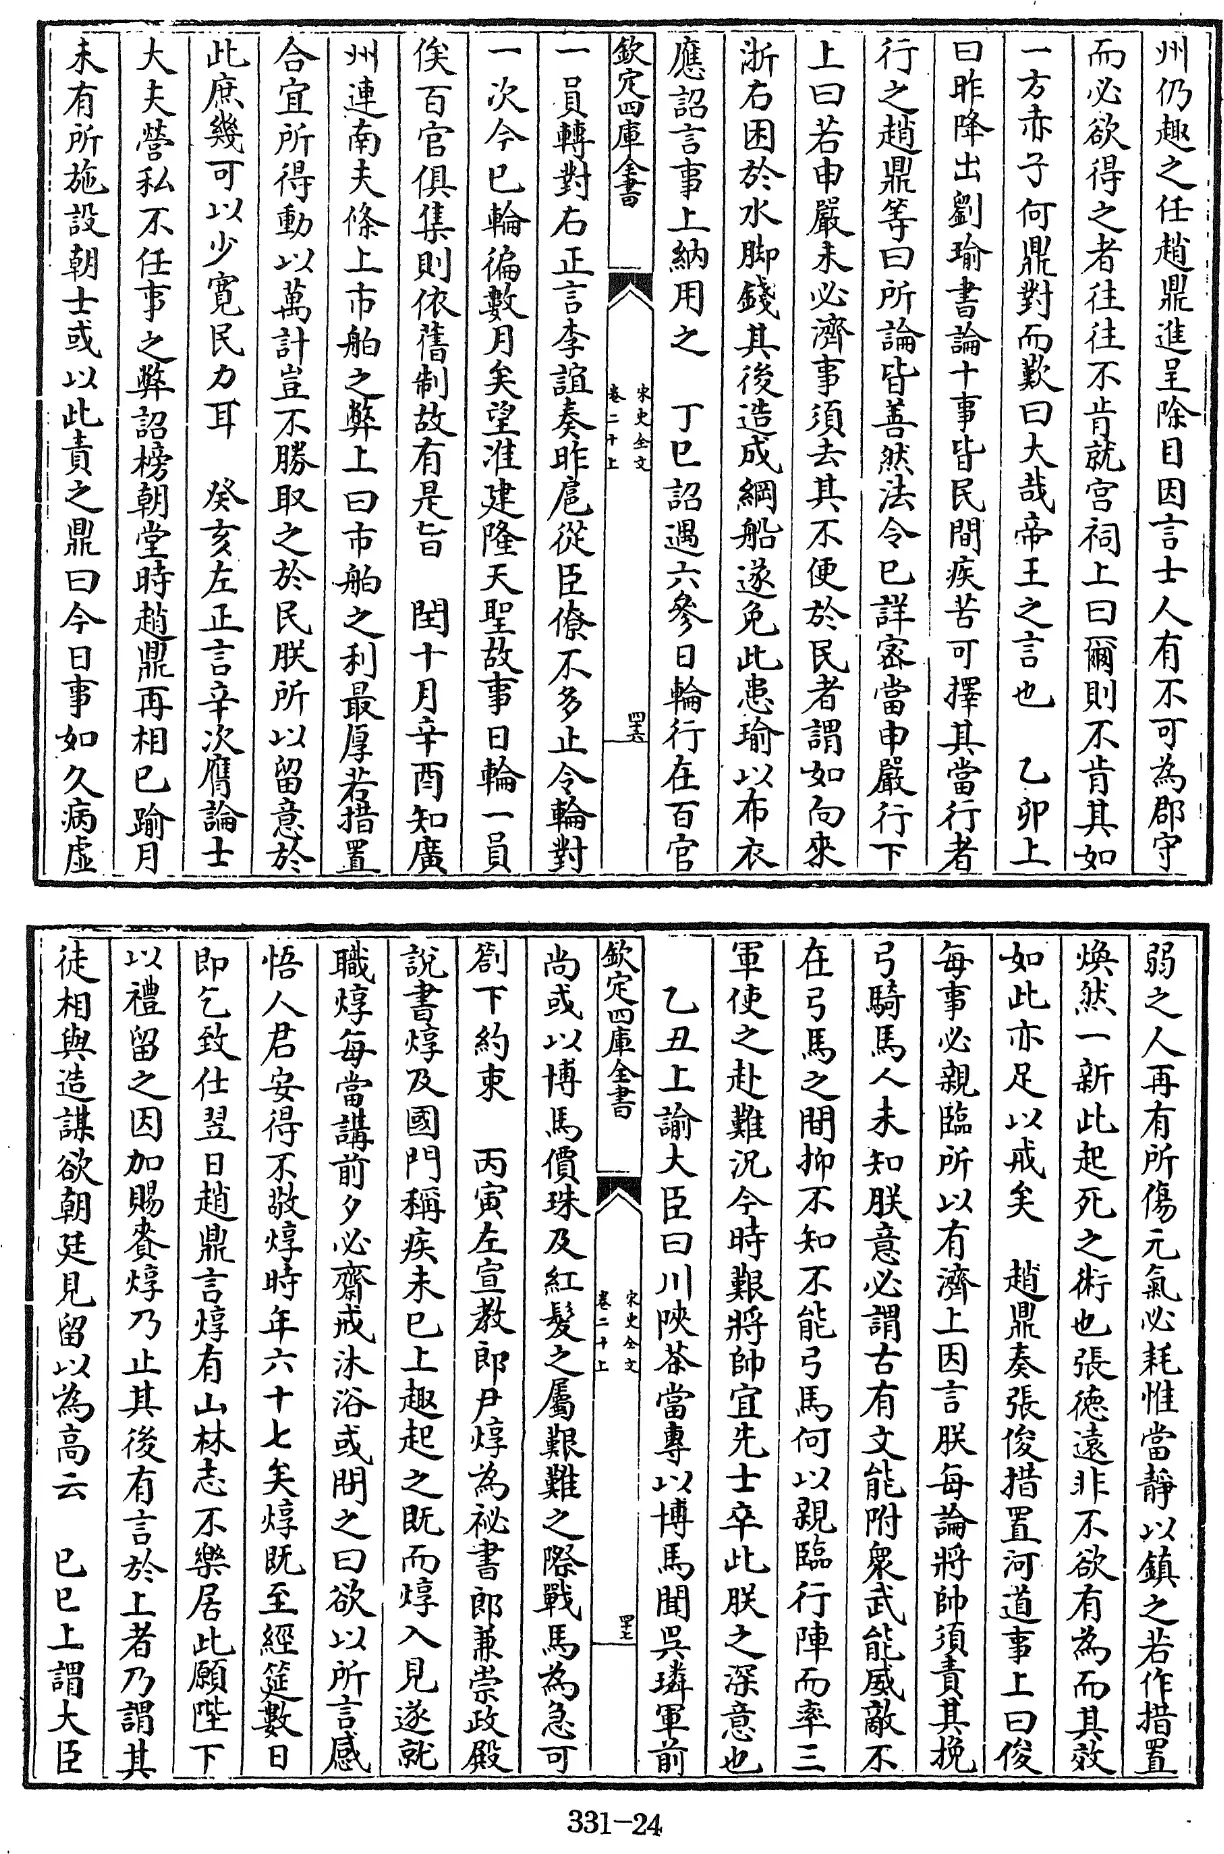 州仍趣之任趙鼎進呈除目因言士人有不可為郡守
而必欲得之者往往不肯就宫祠上曰爾則不肯其如
一方赤子何鼎對而歎曰大哉帝王之言也　乙卯上
曰昨降出劉瑜書論十事皆民間疾苦可擇其當行者
行之趙鼎等曰所論皆善然法令已詳密當申嚴行下
上曰若申嚴未必濟事須去其不便於民者謂如向來
浙右困於水脚錢其後造成綱船遂免此患瑜以布衣
應詔言事上納用之　丁巳詔遇六參日輪行在百官
欽定四庫全書
宋史全文
卷二十上
四十六
一員轉對右正言李誼奏昨扈從臣僚不多止令輪對
一次今已輪徧數月矣望准建隆天聖故事日輪一員
俟百官俱集則依舊制故有是旨　閏十月辛酉知廣
州連南夫條上市舶之弊上曰市舶之利最厚若措置
合宜所得動以萬計豈不勝取之於民朕所以留意於
此庶幾可以少寛民力耳　癸亥左正言辛次膺論士
大夫營私不任事之弊詔榜朝堂時趙鼎再相已踰月
未有所施設朝士或以此責之鼎曰今日事如久病虚
弱之人再有所傷元氣必耗惟當靜以鎮之若作措置
煥然一新此起死之術也張徳遠非不欲有為而其效
如此亦足以戒矣　趙鼎奏張俊措置河道事上曰俊
每事必親臨所以有濟上因言朕每論將帥須責其挽
弓騎馬人未知朕意必謂古有文能附衆武能威敵不
在弓馬之間抑不知不能弓馬何以親臨行陣而率三
軍使之赴難況今時艱將帥宜先士卒此朕之深意也
乙丑上諭大臣曰川陜茶當專以博馬聞吳璘軍前
欽定四庫全書
宋史全文
卷二十上
四十七
尚或以博馬價珠及紅髮之屬艱難之際戰馬為急可
劄下約束　丙寅左宣教郎尹焞為祕書郎兼崇政殿
說書焞及國門稱疾未已上趣起之既而焞入見遂就
職焞每當講前夕必齋戒沐浴或問之曰欲以所言感
悟人君安得不敬焞時年六十七矣焞既至經筵數日
即乞致仕翌日趙鼎言焞有山林志不樂居此願陛下
以禮留之因加賜賚焞乃止其後有言於上者乃謂其
徒相與造謀欲朝廷見留以為高云　己巳上謂大臣
331-24